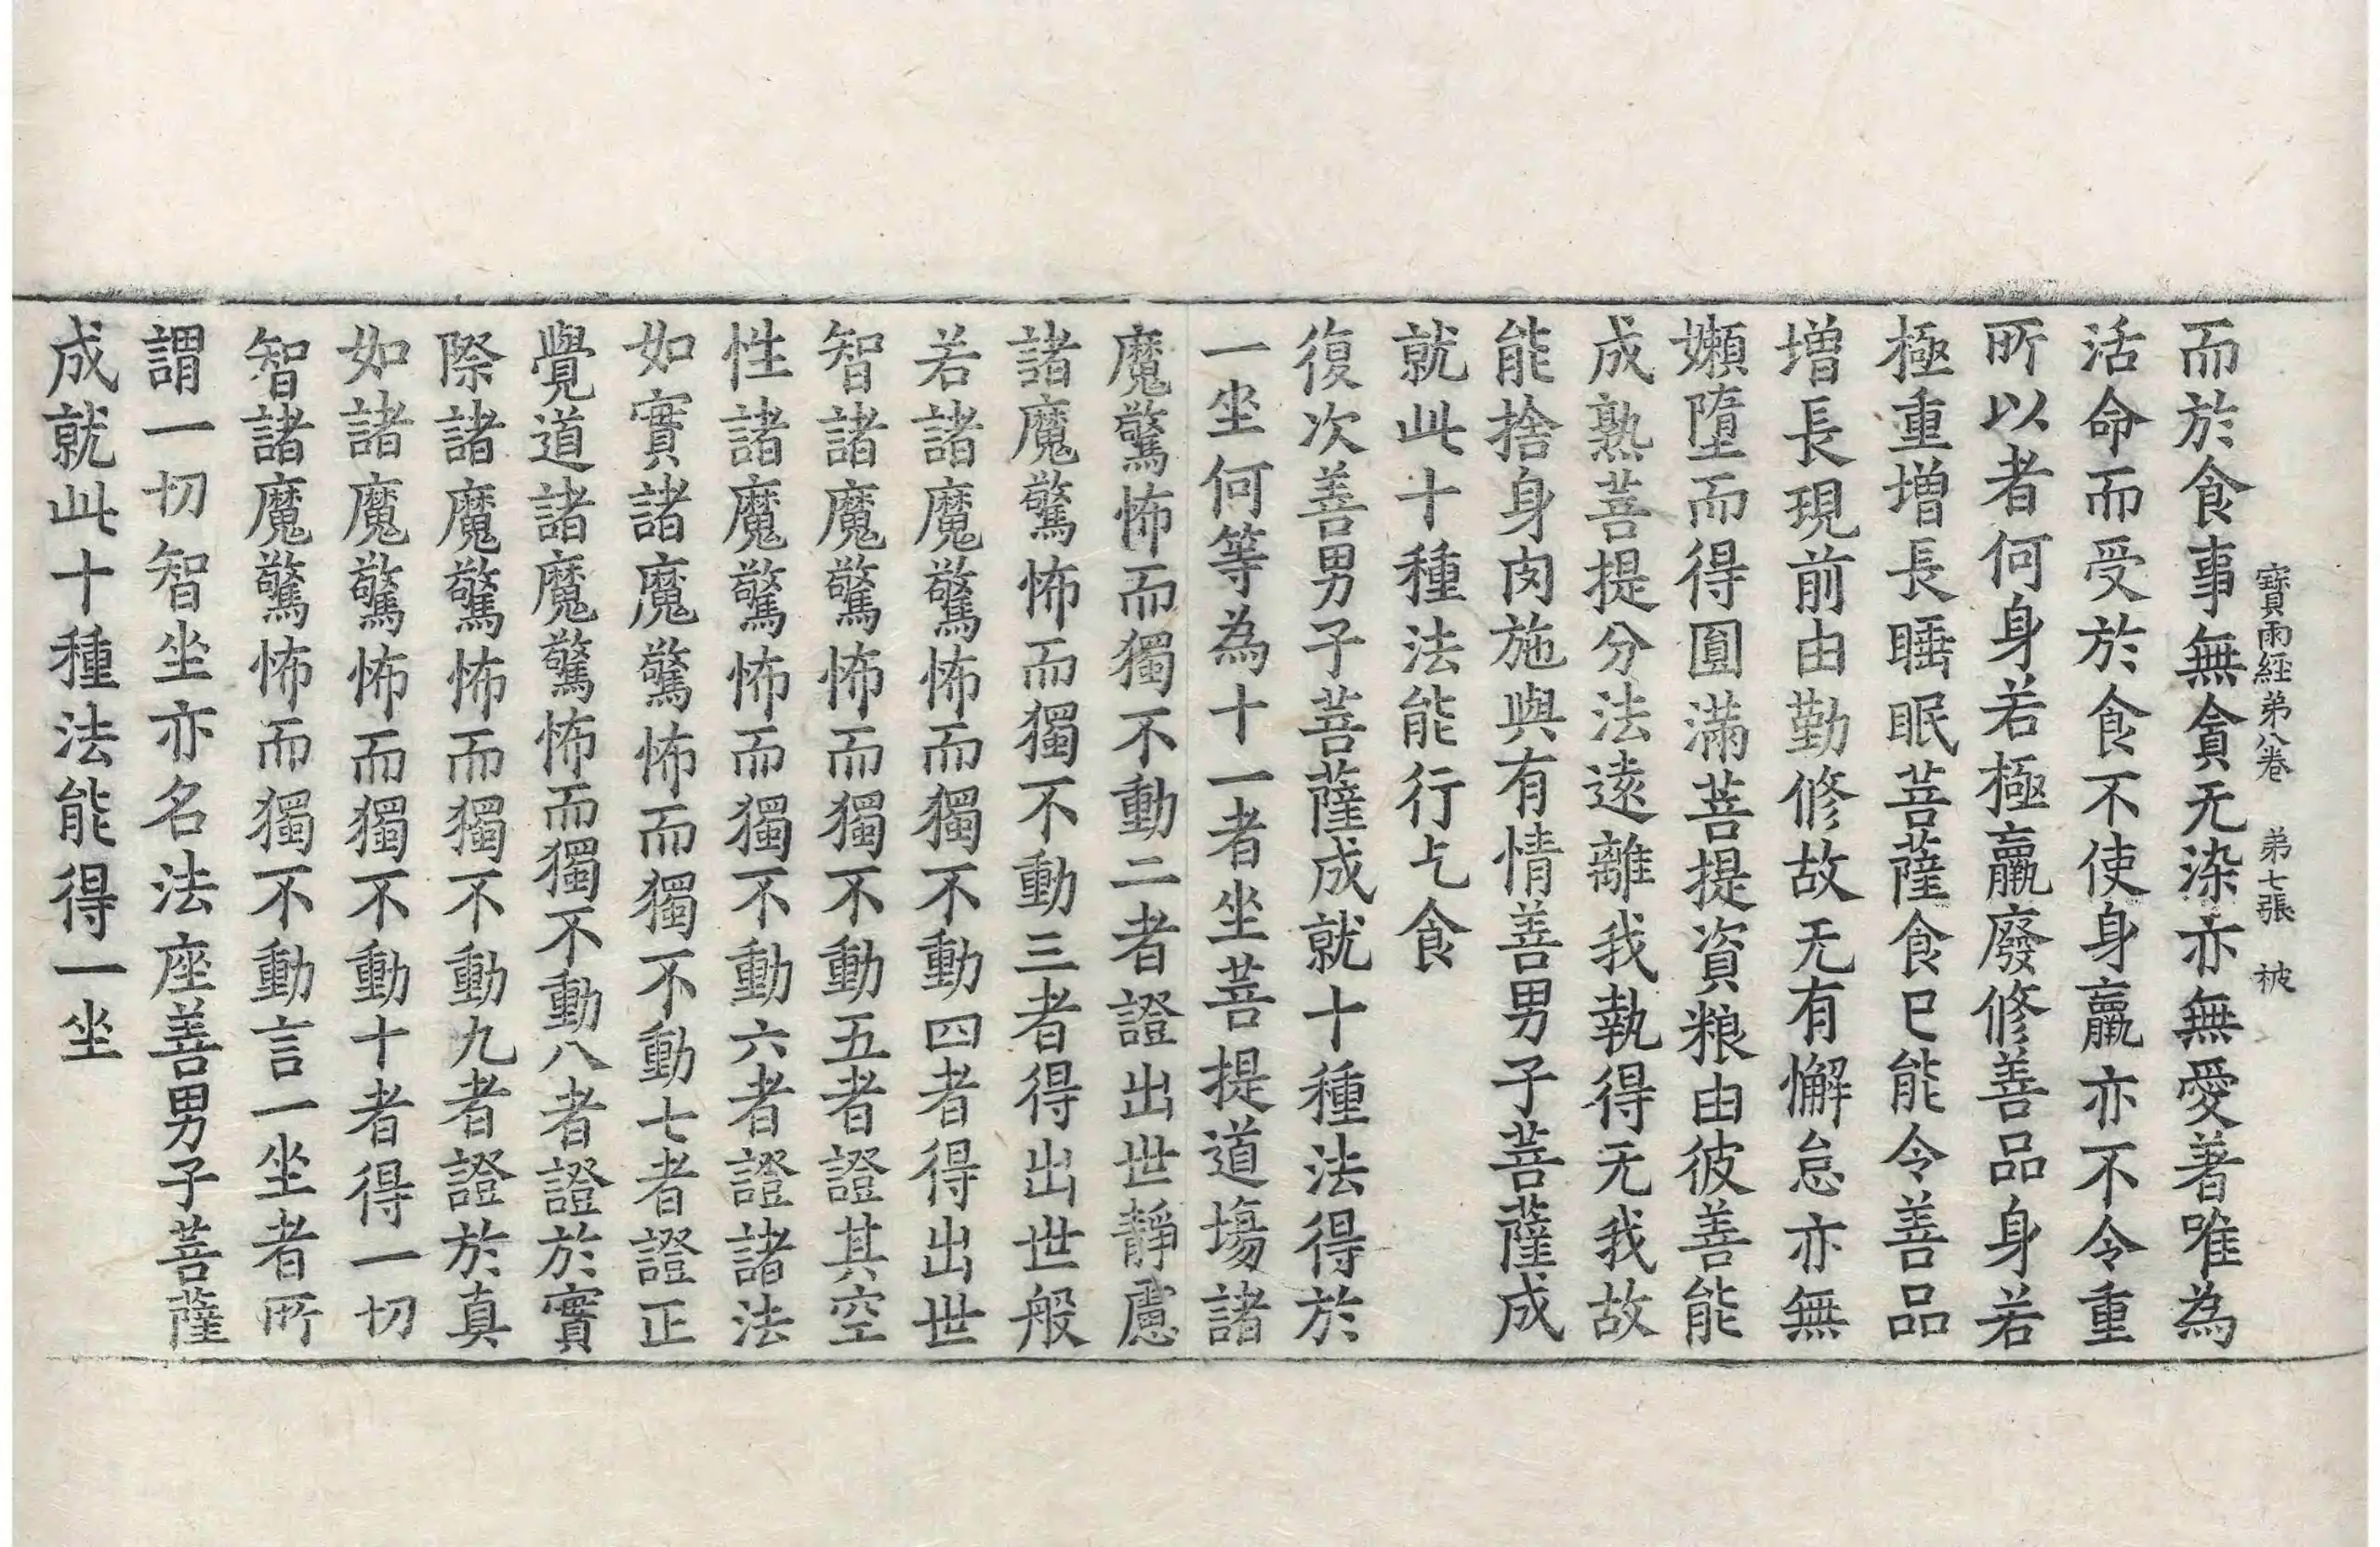 寶雨經弟八卷 弟七張 被
而於食事無貪无染亦無愛著唯為
活命而受於食不使身羸亦不令重
所以者何身若極羸廢修善品身若
極重增長睡眠菩薩食已能令善品
增長現前由勤修故无有懈怠亦無
嬾墮而得圓滿菩提資粮由彼善能
成熟菩提分法遠離我執得无我故
能捨身肉施與有情善男子菩薩成
就此十種法能行乞食
復次善男子菩薩成就十種法得於
一坐何等為十一者坐菩提道場諸
魔驚怖而獨不動二者證出世靜慮
諸魔驚怖而獨不動三者得出世般
若諸魔驚怖而獨不動四者得出世
智諸魔驚怖而獨不動五者證其空
性諸魔驚怖而獨不動六者證諸法
如實諸魔驚怖而獨不動七者證正
覺道諸魔驚怖而獨不動八者證於實
際諸魔驚怖而獨不動九者證於真
如諸魔驚怖而獨不動十者得一切
智諸魔驚怖而獨不動言一坐者所
謂一切智坐亦名法座善男子菩薩
成就此十種法能得一坐